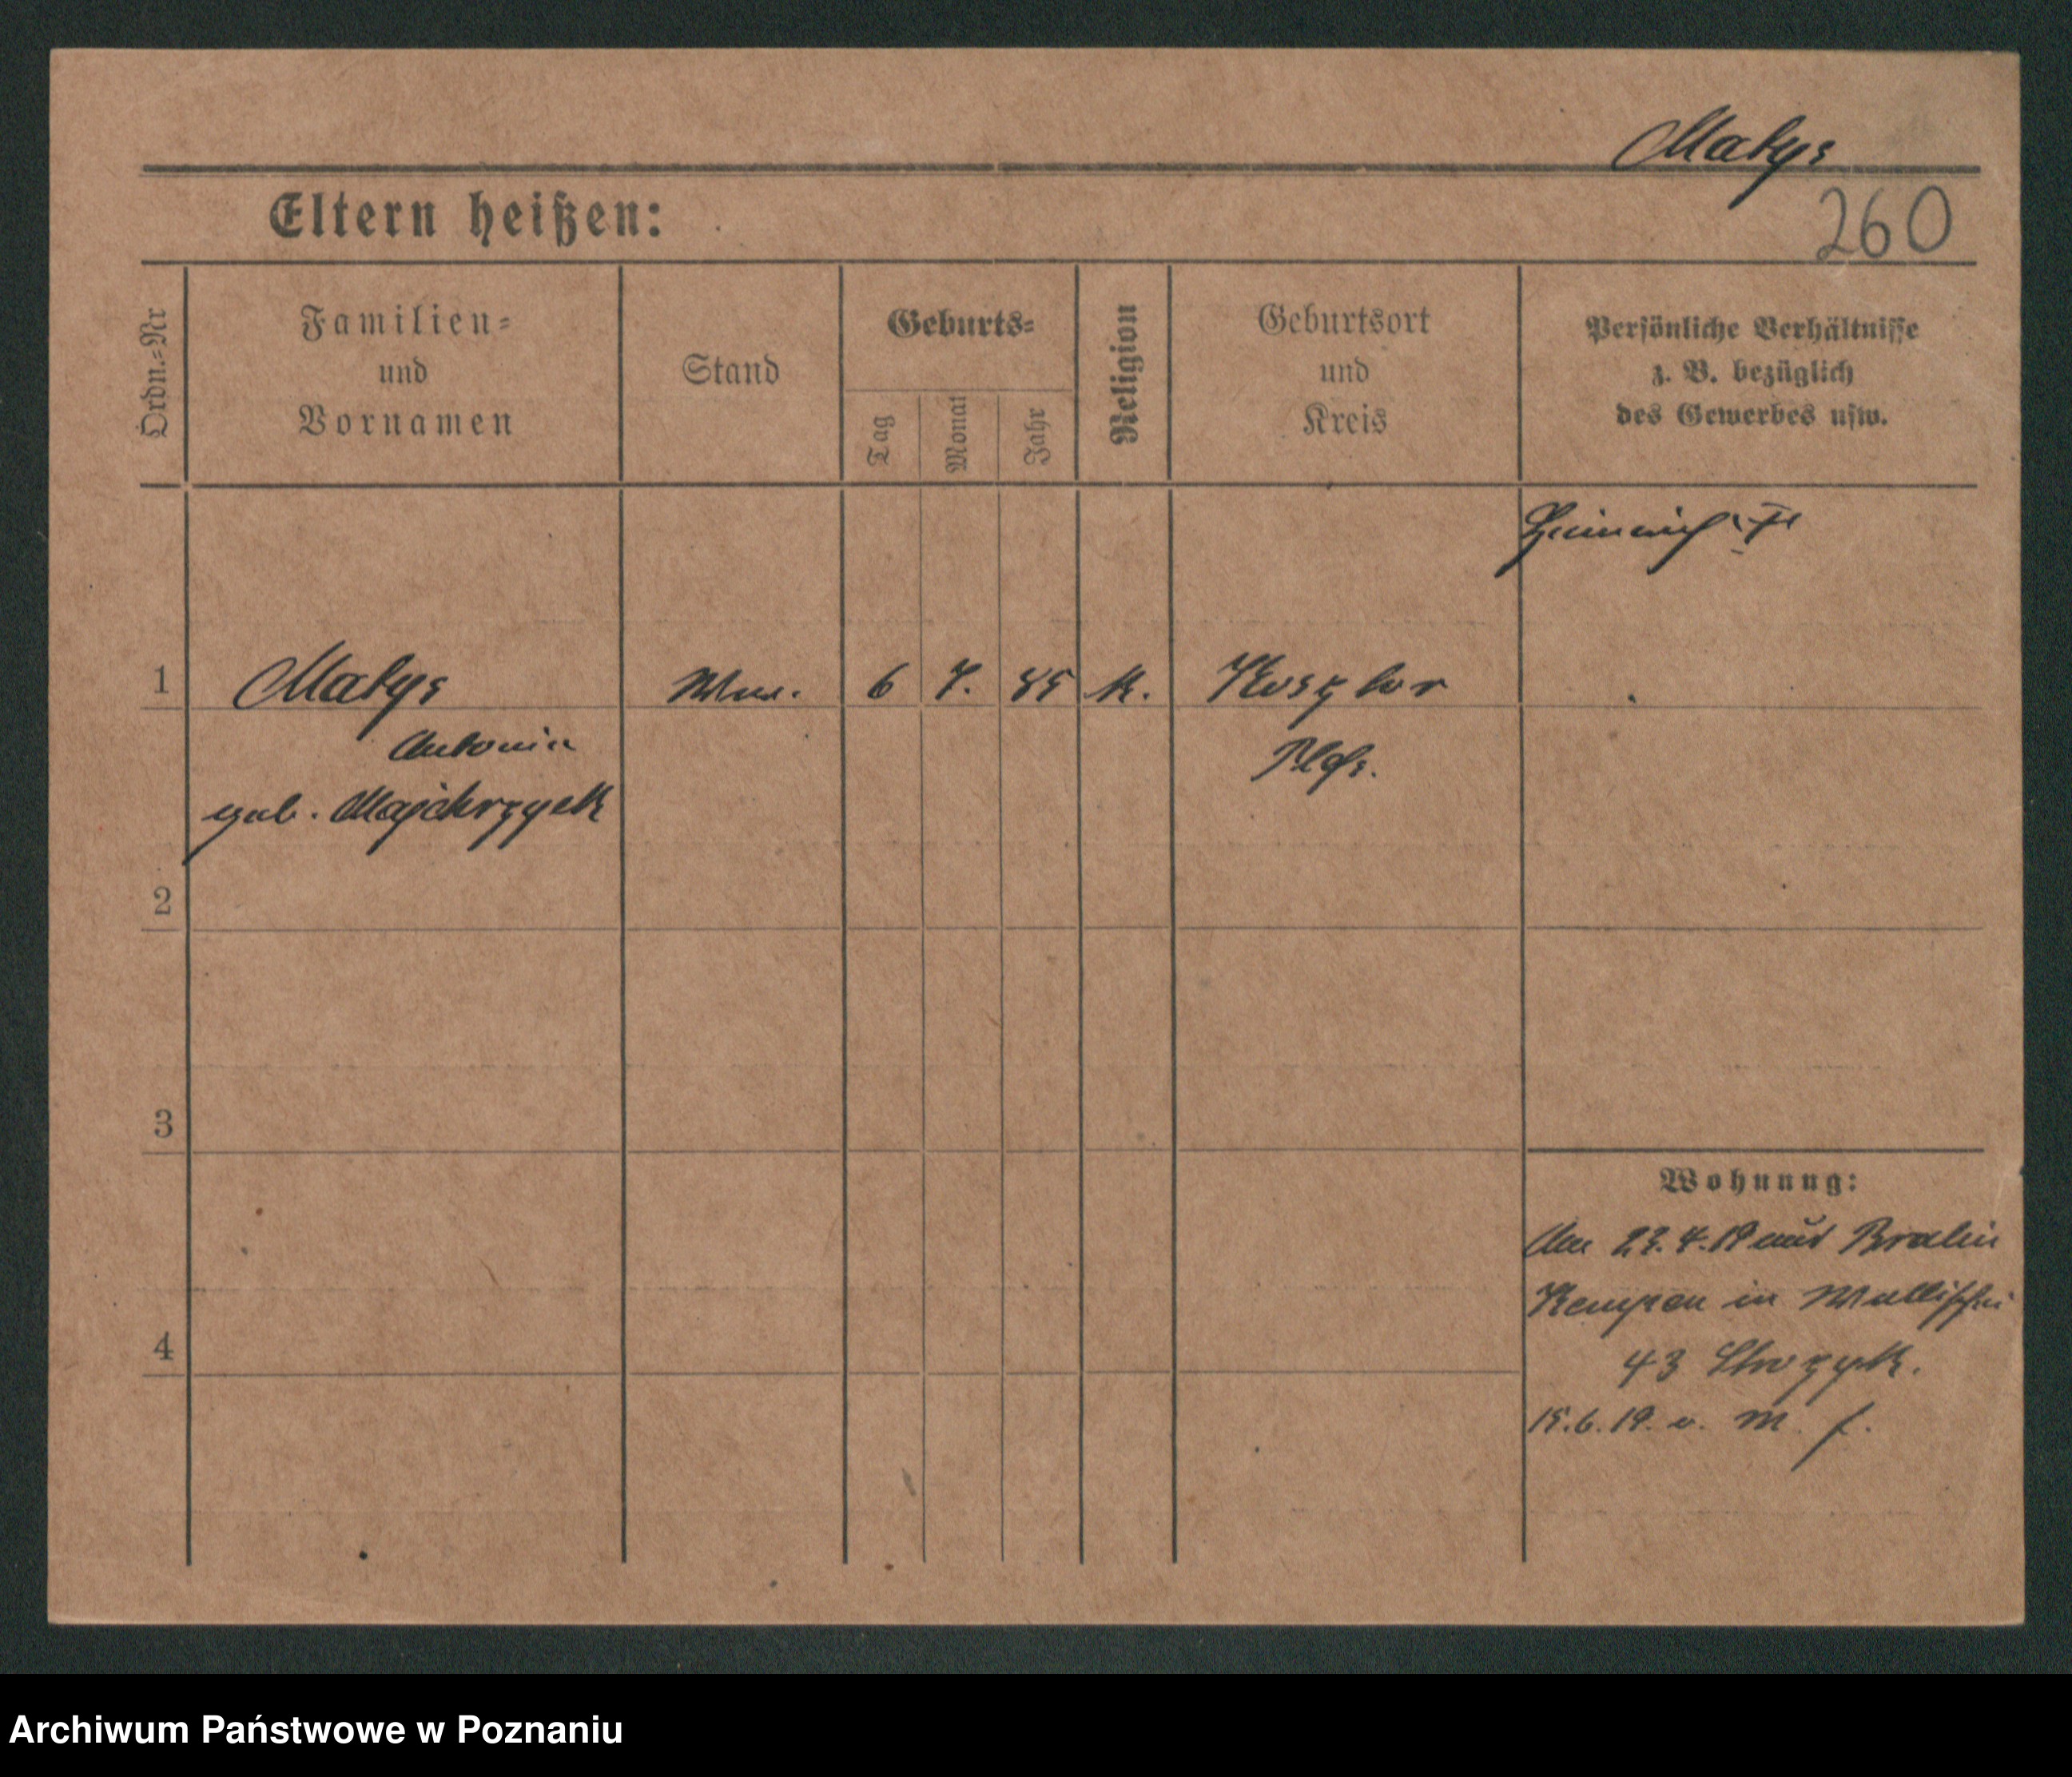 Matys
260
Eltern heißen:
Ordn.=Nr
Familien=
und
Vornamen
Stand
Geburts=
Tag
Monat
Jahr
Religion
Geburtsort
und
Kreis
Persönliche Verhältnisse
z. B. bezüglich
des Gewerbes usw.
1
Matys
Ww.
6
7.
85
K.
Antonia
geb. Majchrzyck
2
3
4
Wohnung:
Am 23.4.19 aus Bralin
Kempen in Wallischei
43
15.6.19. v.
Archiwum Państwowe w Poznaniu